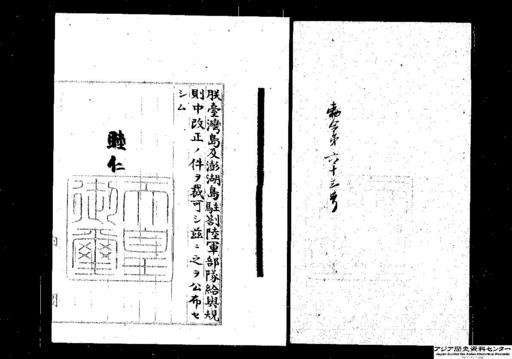 勅令第六十三号
朕臺灣島及澎湖島駐劄陸軍部隊給與規
則中改正ノ件ヲ裁可シ茲ニ之ヲ公布セ
シム
睦仁
天皇
御璽
アジア歴史資料センター
Japan Center for Asian Historical Records